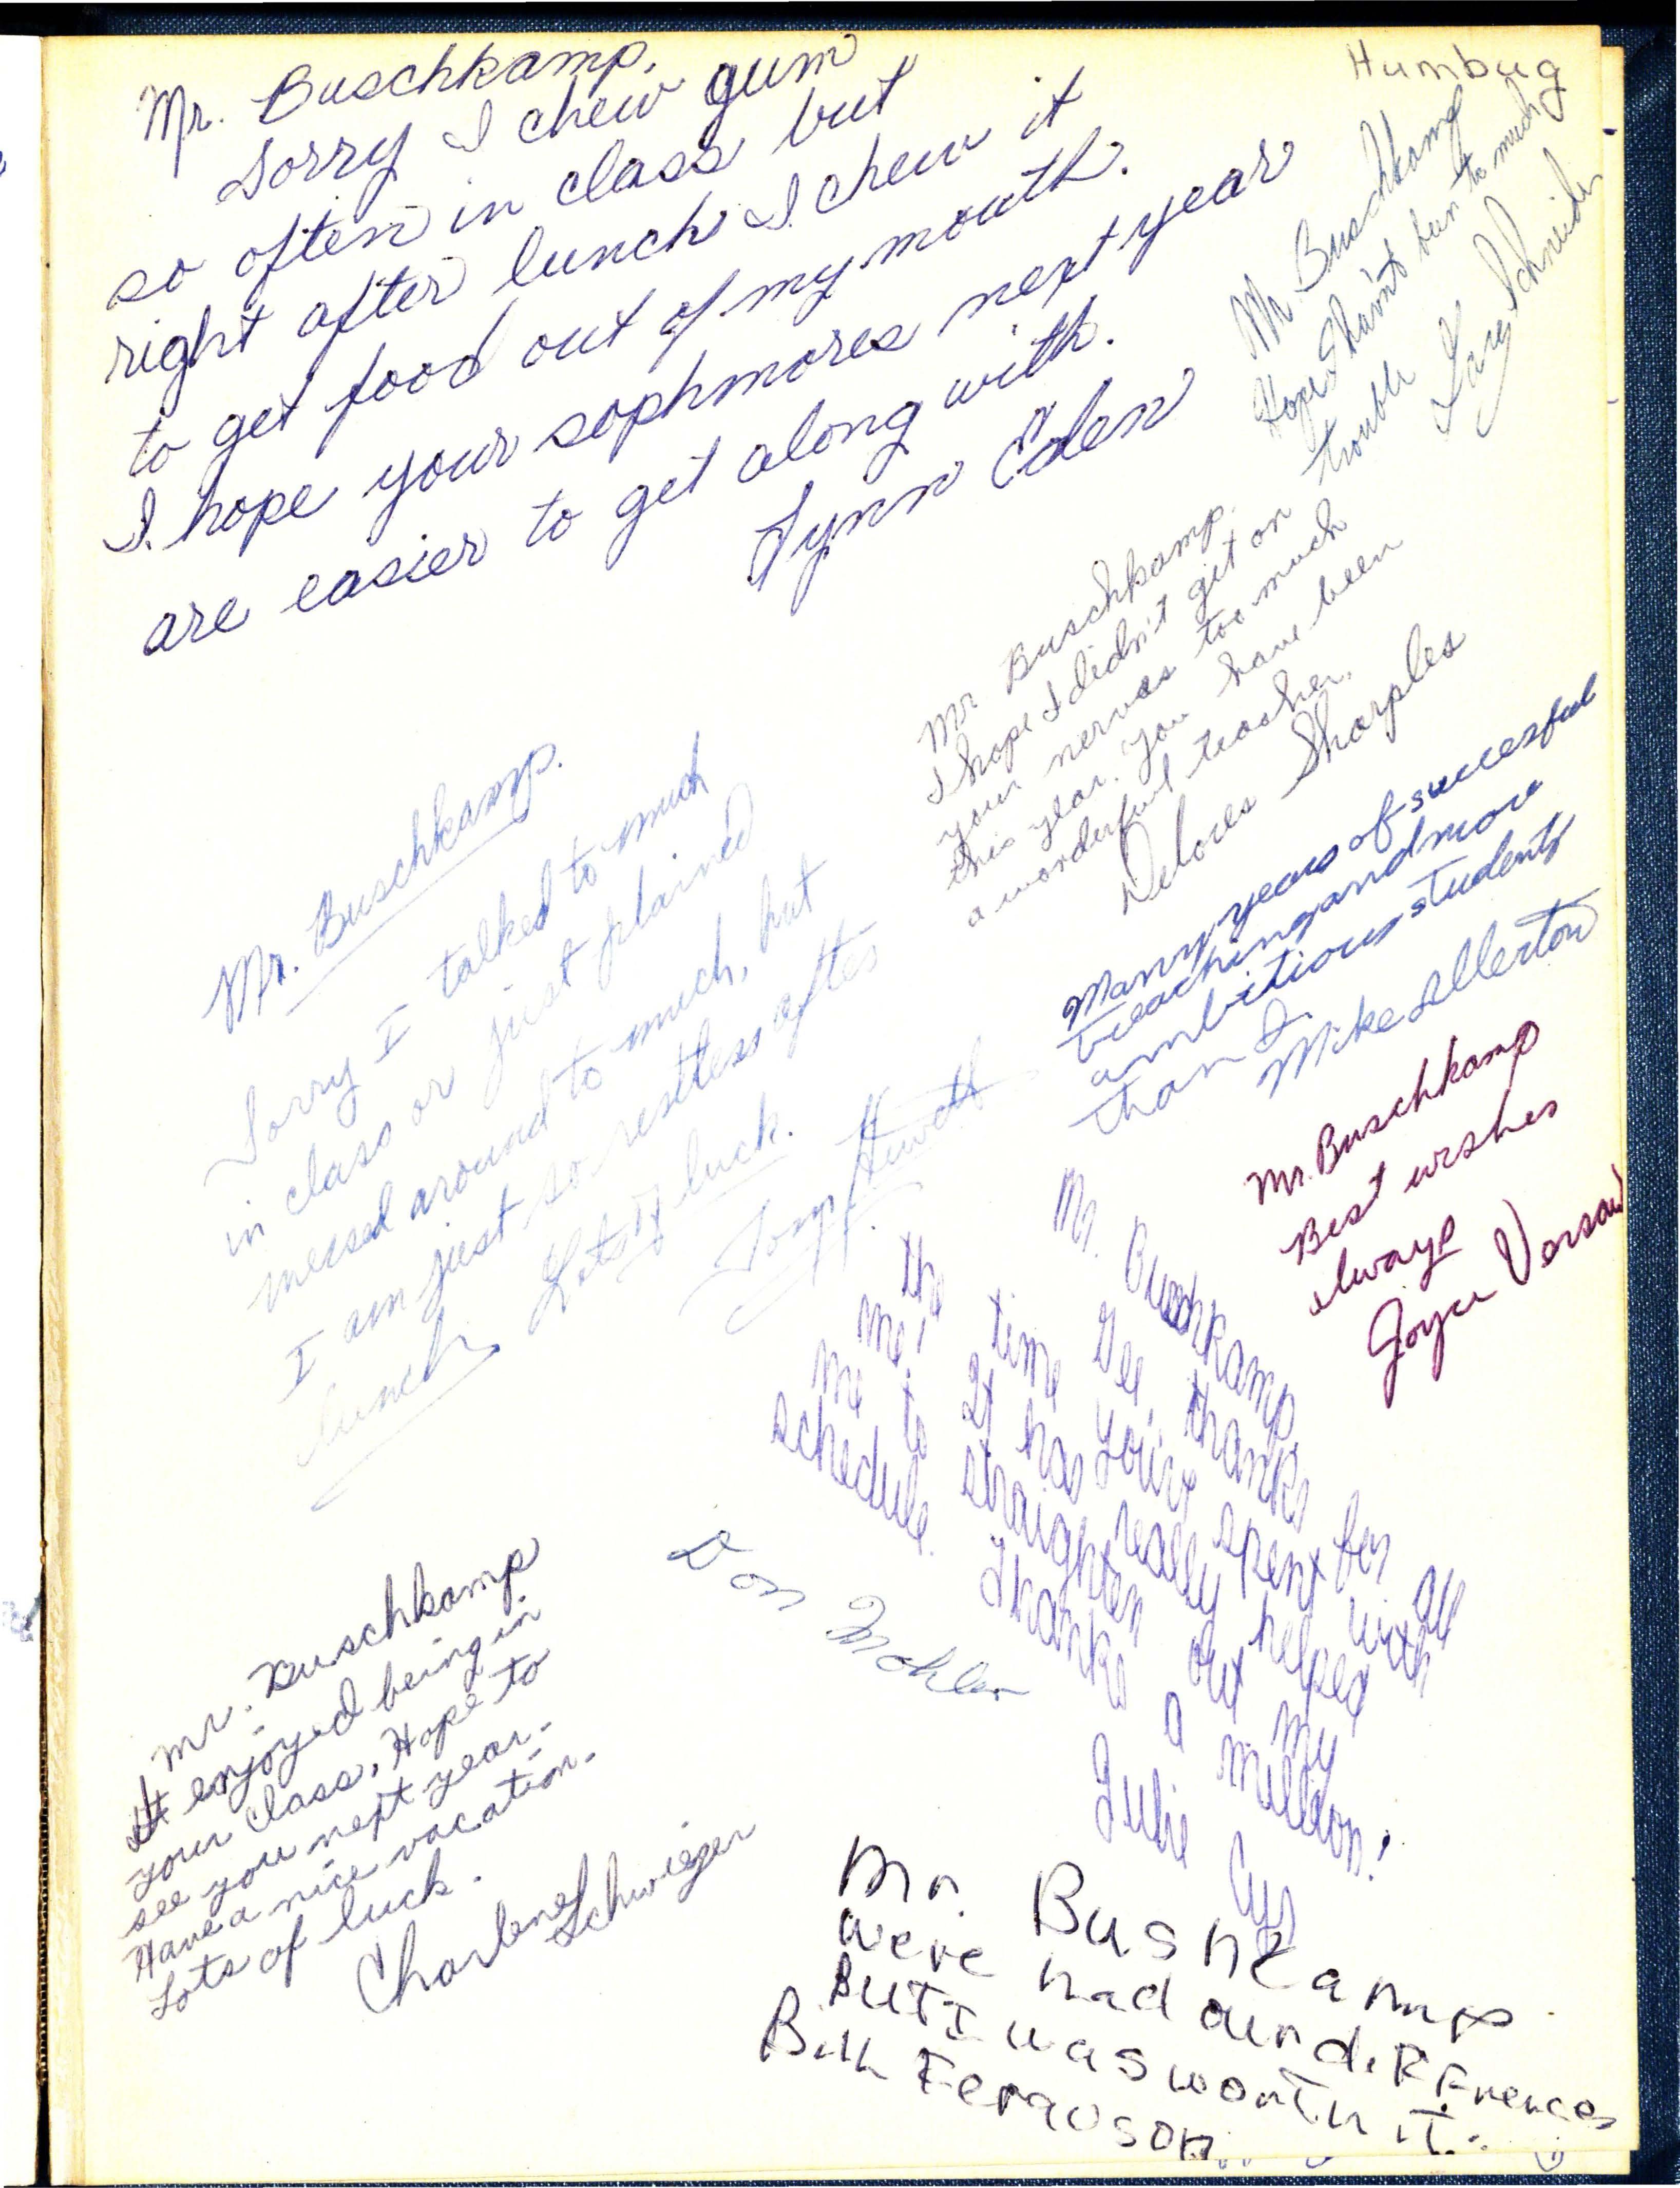 Mr. Buschkamp,
Sorry I chew gum
so often in class but
right after lunch I chew it
to get food out of my mouth.
I hope your sophmores next year
are easier to get along with.
Lynn Eden
Humbug
Mr. Buschkamp
Hope I haven't bun to much
trouble
Schneider
Mr Buschkamp.
I hope I didn't get on
your nerves too much
this year. You have been
a wonderful teacher.
Delores Sharples
Many years of successful
teaching and more
ambitious students
than I.
Mike Allerton
Mr. Buschkamp.
Sorry I talked to much
in class or just plained
messed around to much, but
I am just so restless after
lunch. Lots of luck.
Tom
Mr. Buschkamp
Best wishes
always
Joyce
Mr. Buschkamp,
Gee, thanks for all
the time you've spent with
me! It has really helped
me to straighten out my
schedule. Thanks a million!
Julie
Don Mohler
Mr. Buschkamp
I enjoyed being in
your class, Hope to
see you next year.
Have a nice vacation.
Lots of luck.
Charlene Schwieger
Mr. Bushkamp
were had our differences
But I was worth it.
Bill Ferguson